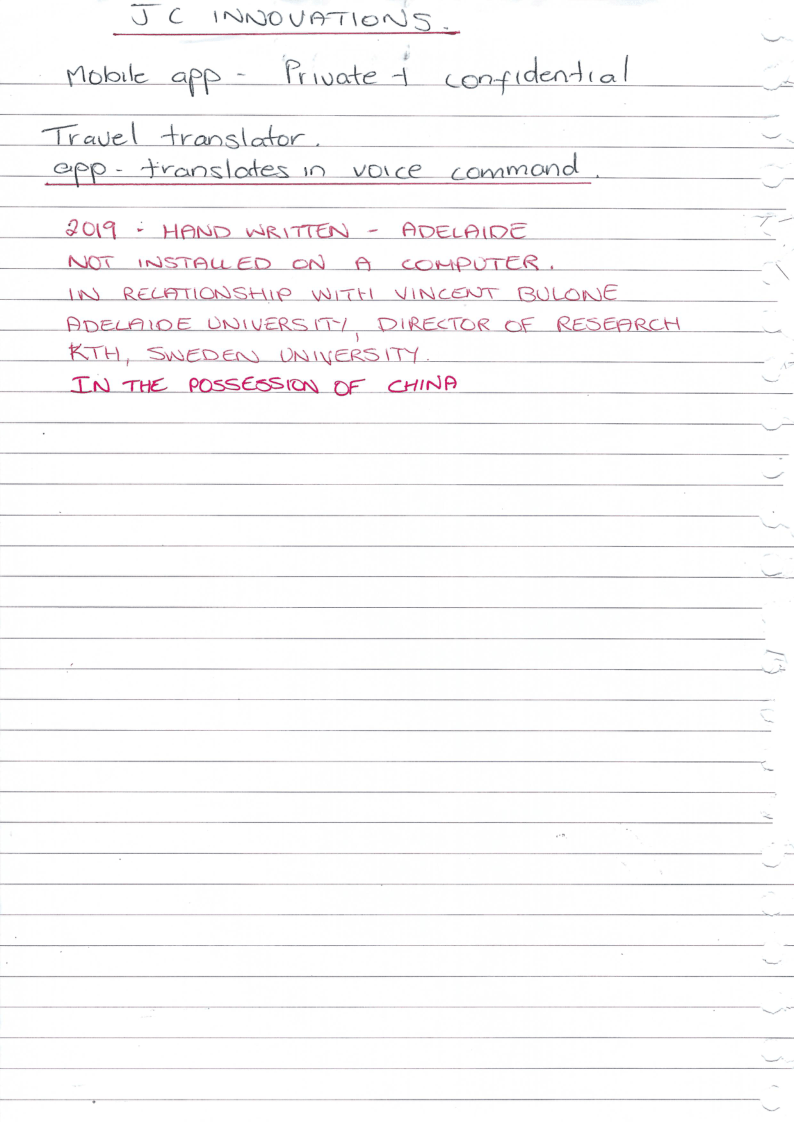 JC INNOVATIONS.
Mobile app - Private + confidential
Travel translator.
app - translates in voice command.
2019 : HAND WRITTEN - ADELAIDE
NOT INSTALLED ON A COMPUTER.
IN RELATIONSHIP WITH VINCENT BULONE
ADELAIDE UNIVERSITY, DIRECTOR OF RESEARCH
KTH, SWEDEN UNIVERSITY.
IN THE POSSESSION OF CHINA